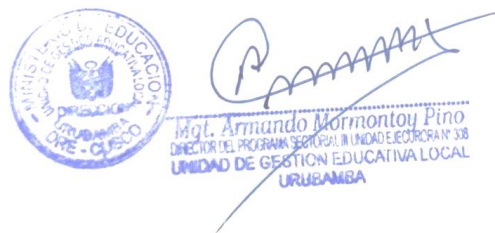 MINISTERIO DE EDUCACION
UNIDAD DE GESTION EDUCATIVA LOCAL
DIRECCION
URUBAMBA
DRE - CUSCO
Mgt. Armando Mormontoy Pino
DIRECTOR DEL PROGRAMA SECTORIAL III UNIDAD EJECUTORA N° 308
UNIDAD DE GESTION EDUCATIVA LOCAL
URUBAMBA